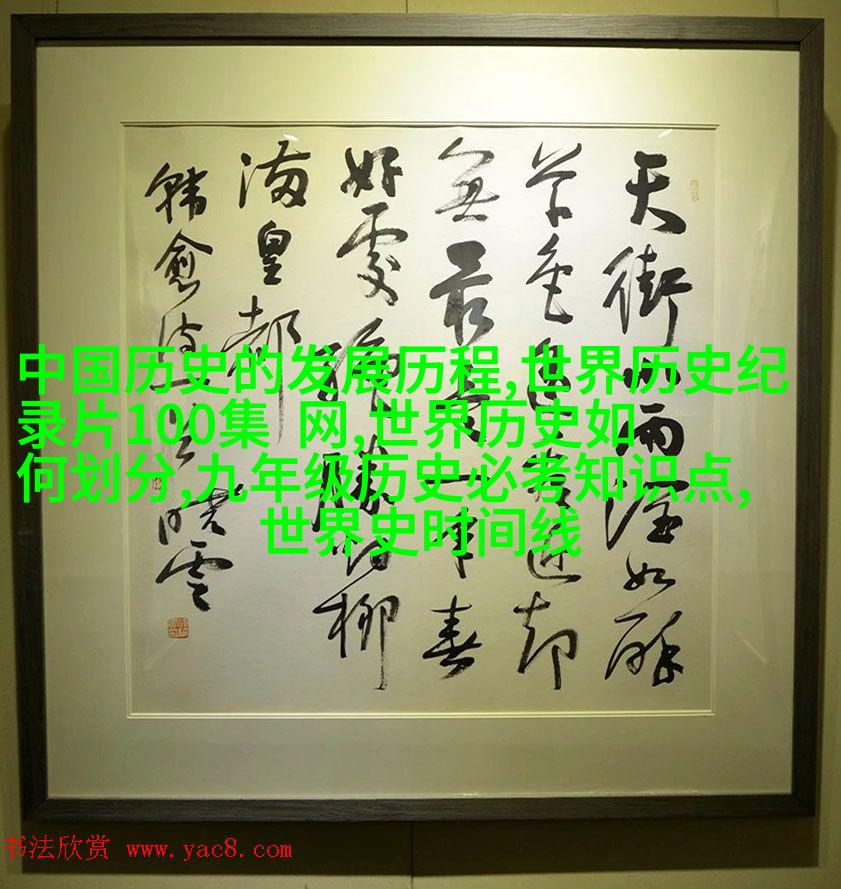 中国历史的发展历程,世界历史纪
录片100集 网,世界历史如
何划分,九年级历史必考知识点,
世界史时间线
天街小雨润如酥
草色遥看近却
无最是一年春
好處绝勝烟柳
满皇都
韩愈诗
晓云
书法欣赏 www.yac8.com